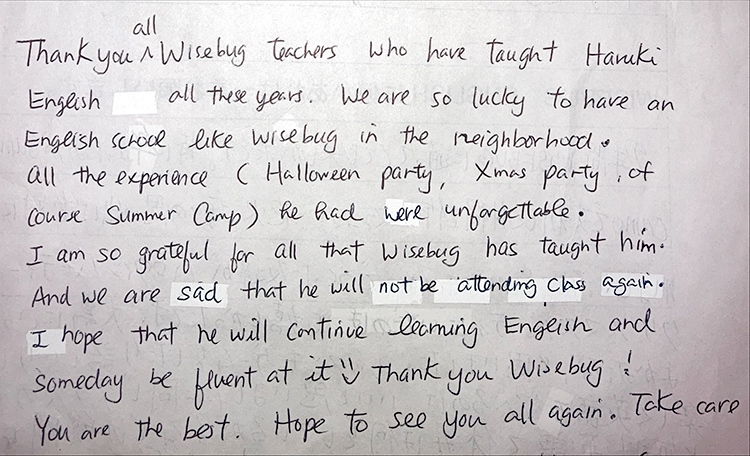 Thank you all Wisebug teachers who have taught Haruki
English all these years. We are so lucky to have an
English school like Wisebug in the neighborhood.
all the experience (Halloween party, Xmas party, of
course Summer Camp) he had were unforgettable.
I am so grateful for all that Wisebug has taught him.
And we are sad that he will not be attending class again.
I hope that he will continue learning English and
someday be fluent at it Thank you Wisebug!
You are the best. Hope to see you all again. Take care